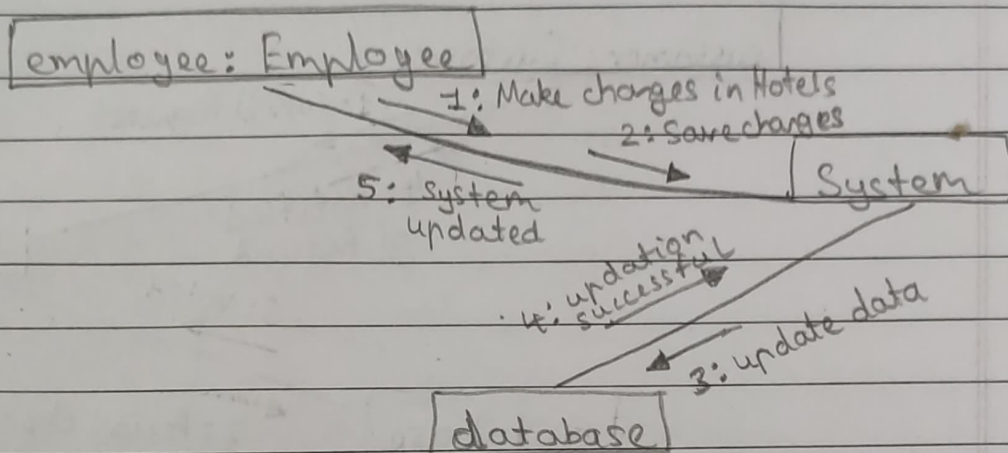 employee: Employee
1: Make changes in Hotels
2: Save changes
System
5: System
updated
4: updation
successful
3: update data
database